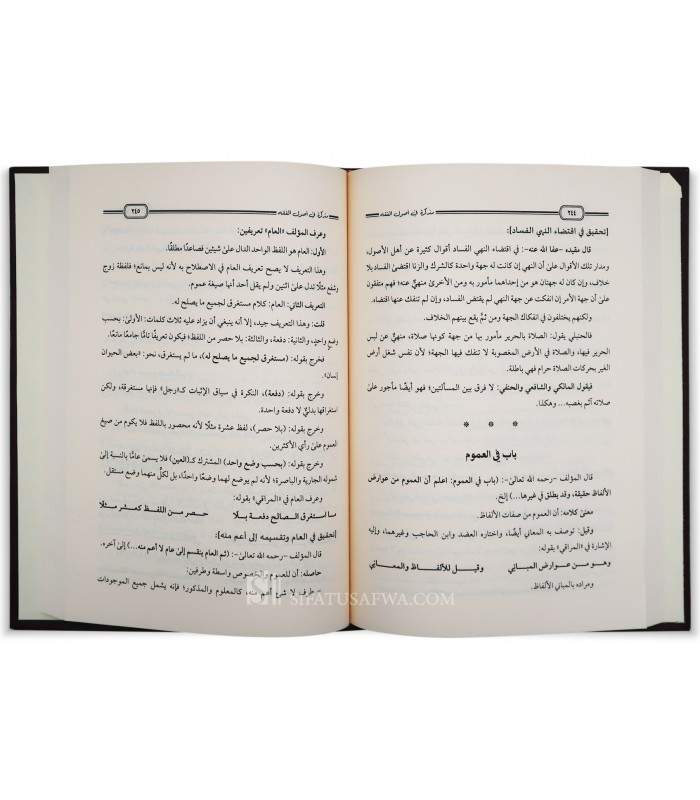 ٢٤٤
مذكرة في أصول الفقه
[تحقيق في اقتضاء النهي الفساد]:
قال مقيده -عفا الله عنه-: في اقتضاء النهي الفساد أقوال كثيرة عن أهل الأصول،
ومدار تلك الأقوال على أن النهي إن كانت له جهة واحدة كالشرك والزنا اقتضى الفساد بلا
خلاف، وإن كان له جهتان هو من إحداهما مأمور به ومن الأخرى منهيٌّ عنه؛ فهم متفقون
على أن جهة الأمر إن انفكت عن جهة النهي لم يقتض الفساد، وإن لم تنفك عنها اقتضاه.
ولكنهم يختلفون في انفكاك الجهة ومن ثمَّ يقع بينهم الخلاف.
فالحنبلي يقول: الصلاة بالحرير مأمور بها من جهة كونها صلاة، منهيٌّ عن لبس
الحرير فيها، والصلاة في الأرض المغصوبة لا تنفك فيها الجهة؛ لأن نفس شغل أرض
الغير بحركات الصلاة حرام فهي باطلة.
فيقول المالكي والشافعي والحنفي: لا فرق بين المسألتين؛ فهو أيضًا مأجور على
صلاته آثم بغصبه... وهكذا.
* * *
باب في العموم
قال المؤلف -رحمه الله تعالى-: (باب في العموم: اعلم أن العموم من عوارض
الألفاظ حقيقة، وقد يطلق في غيرها...) إلخ.
معنى كلامه: أن العموم من صفات الألفاظ.
وقيل: توصف به المعاني أيضًا، واختاره العضد وابن الحاجب وغيرهما، وإليه
الإشارة في «المراقي» بقوله:
وهو من عوارض المباني وقيل للألفاظ والمعاني
ومراده بالمباني الألفاظ.
مذكرة في أصول الفقه
٢٤٥
وعرف المؤلف «العام» تعريفين:
الأول: العام هو اللفظ الواحد الدال على شيئين فصاعدًا مطلقًا.
وهذا التعريف لا يصح تعريف العام في الاصطلاح به لأنه ليس بمانع؛ فلفظة زوج
وشفع مثلًا تدل على اثنين ولم يقل أحد أنها صيغة عموم.
التعريف الثاني: العام: كلام مستغرق لجميع ما يصلح له.
قلت: وهذا التعريف جيد، إلا أنه ينبغي أن يزاد عليه ثلاث كلمات: الأولى: بحسب
وضع واحدٍ، والثانية: دفعة، والثالثة: بلا حصر من اللفظ؛ فيكون تعريفًا تامًّا جامعًا مانعًا.
فخرج بقوله: (مستغرق لجميع ما يصلح له)، ما لم يستغرق، نحو: «بعض الحيوان
إنسان».
وخرج بقوله: (دفعة)، النكرة في سياق الإثبات كـ«رجل» فإنها مستغرقة، ولكن
استغراقها بدليٌّ لا دفعة واحدة.
وخرج بقوله: (بلا حصر)، لفظ عشرة مثلًا لأنه محصور باللفظ فلا يكوم من صيغ
العموم على رأي الأكثرين.
وخرج بقوله: (بحسب وضع واحد) المشترك كـ(العين) فلا يسمى عامًّا بالنسبة إلى
شموله الجارية والباصرة؛ لأنه لم يوضع لهما وضعًا واحدًا، بل لكلٍّ منهما وضع مستقل.
وعرف العام في «المراقي» بقوله:
ما استغرق الصالح دفعة بلا حصر من اللفظ كعشر مثلا
[تحقيق في العام وتقسيمه إلى أعم منه]:
قال المؤلف -رحمه الله تعالى-: (ثم العام ينقسم إلى عام لا أعم منه...) إلى آخره.
حاصله: أن للعموم والخصوص واسطة وطرفين:
- طرف لا شيء أعم منه، كالمعلوم والمذكور؛ فإنه يشمل جميع الموجودات
SIFATUSAFWA.COM